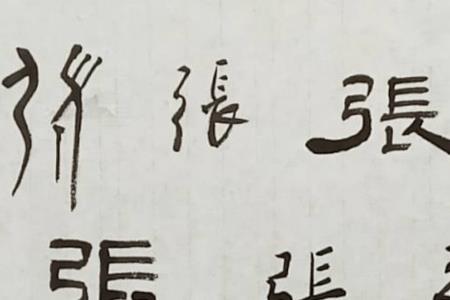 張 張
張 張